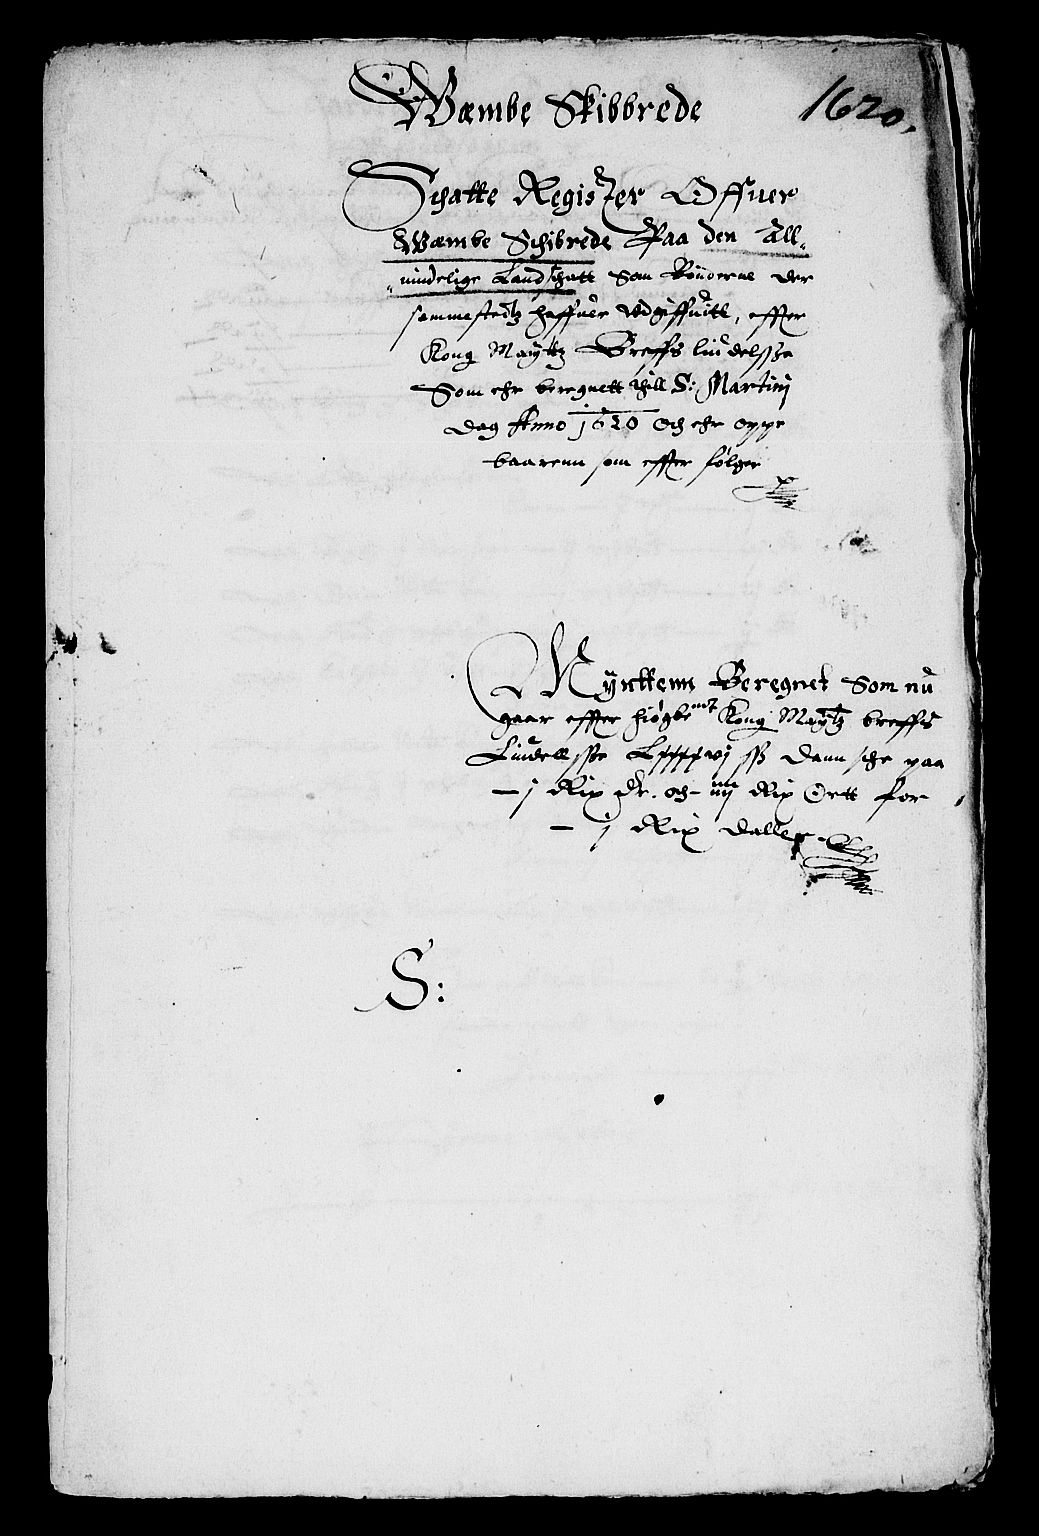 Wæmbe Skibbrede 1620.
Schatte Register Offuer
Wæmbe Schibrede Paa den All„
„mindelige Landschatt Som Bønderne der
sammestedtz haffuer udgiffuitt, effter
Kong Maÿttz Breffs liudelsse
Som ehr beregnett thill S: Martinj
dag Anno 1620 Och ehr oppe
baarenn som effter følger
Mÿnttenn Beregnet Som nu
gaar effter høgbemt Kong Maÿtz breffs
Liudelsse Lxxxxvj ss dannsche paa
– j Rix dr. och – iiij Rix Ortt for
– j Rix daller
S: